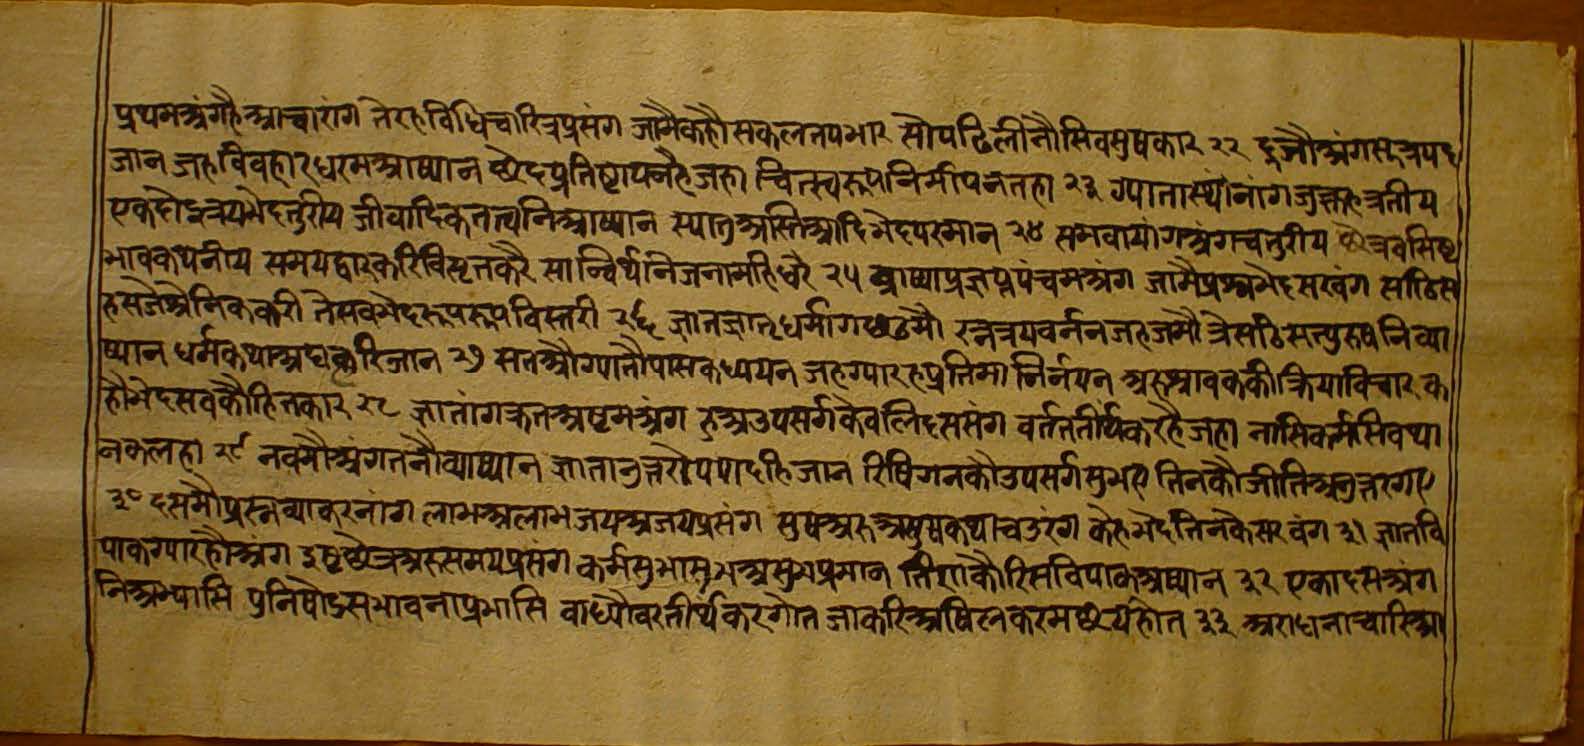 प्रथमअंगहैआचारांग तेरहविधिचारित्रप्रसंग जामैकहौसकलतपभार सोपढिलीनौसिवसुषकार २२ दूजौअंगसूत्रपद
जान जहविवहारधरमआष्यान छेदप्रतिष्टापनहैजहा चितस्वरूपनि तहा २३ ग्यातास्थांनांगजु त्रतीय
एकदोइत्रयभेदतुरीय जीवादिकतत्वनिआष्यान स्यातुअस्तिआदिभेदपरमान २४ समवायांगअंगचतुरीय
भावकथनीय समयद्वारकरिविसृतकरै सानिजनामहिधरै २५ व्याष्याप्रज्ञप्तपंचमअंग जामैप्रश्नभेदसरवंग साठिस
हसजेश्रेनिककरी तेसवभेदरूपरूपविस्तरी २६ ज्ञानज्ञातृधर्मागछठमौ रत्नत्रयवर्ननजहजमौ त्रेसठिसत्पुरुषनिव्या
ष्यान धर्मकथाअघकरिजान २७ सतऔग्यातौपासकध्ययन जहग्यारहप्रतिमानिर्नयन अरुश्रावककीक्रियाविचार क
हौभेदसवकौहितकार २८ ज्ञातांगक्रतअष्टमअंग उपसर्गकेवलिदससंग वर्ततीर्थकरहैजहा नासिकर्मसिवथा
नकलहा २९ नवमौअंगतनौव्याष्यान ज्ञातानुत्तरौपपादहिजान रिषिगनकौउपसर्गसुभए तिनकौजीतिअनुत्तरगए
३० दसमौप्रस्नव्याकरनांग लाभअलाभजयअजयप्रसंग सुषअरुअसुषकथाचउरंग केहभेदतिनकैसरवंग ३१ ज्ञानवि
पाकग्यारहौअंग समयप्रसंग कर्मसुभासुभअसुभप्रमान विपाकआष्यान ३२ एकादसअंग
निअभ्यासि पुनिषोडसभावनाप्रभासि वाध्यौवरतीर्थकरगोत जाकरिअषिलकरमछयहोत ३३ अराधनाचारिआ